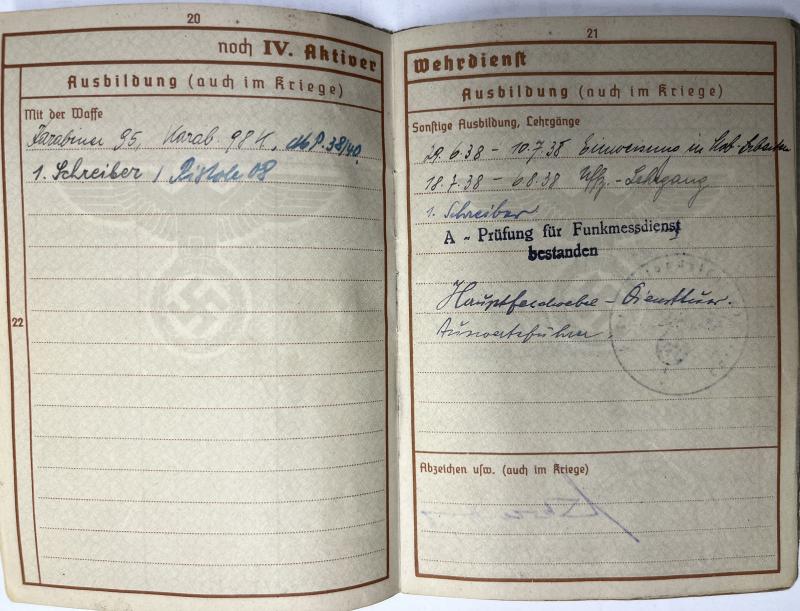 20
noch IV. Aktiver
Ausbildung (auch im Kriege)
Mit der Waffe
Karabiner 95, Karab 98 K, M.P. 38/40.
1. Schreiber / Pistole 08
22
21
Wehrdienst
Ausbildung (auch im Kriege)
Sonstige Ausbildung, Lehrgänge
29.6.38 - 10.7.38 Einweisung in
18.7.38 - 6.8.38 Uffz.-Lehrgang
1. Schreiber
A - Prüfung für Funkmessdienst
bestanden
Hauptfeldwebel-Diensttuer.
Auswerteführer
Abzeichen usw. (auch im Kriege)